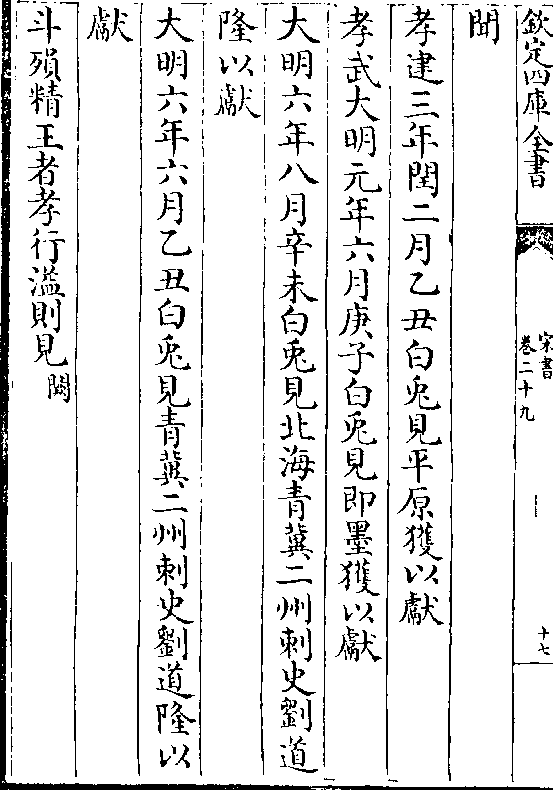 欽定四庫全書
宋書
卷二十九
十七
聞
孝建三年閏二月乙丑白兎見平原獲以獻
孝武大明元年六月庚子白兎見即墨獲以獻
大明六年八月辛未白兎見北海青冀二州刺史劉道
隆以獻
大明六年六月乙丑白兎見青冀二州刺史劉道隆以
獻
斗殞精王者孝行溢則見闕